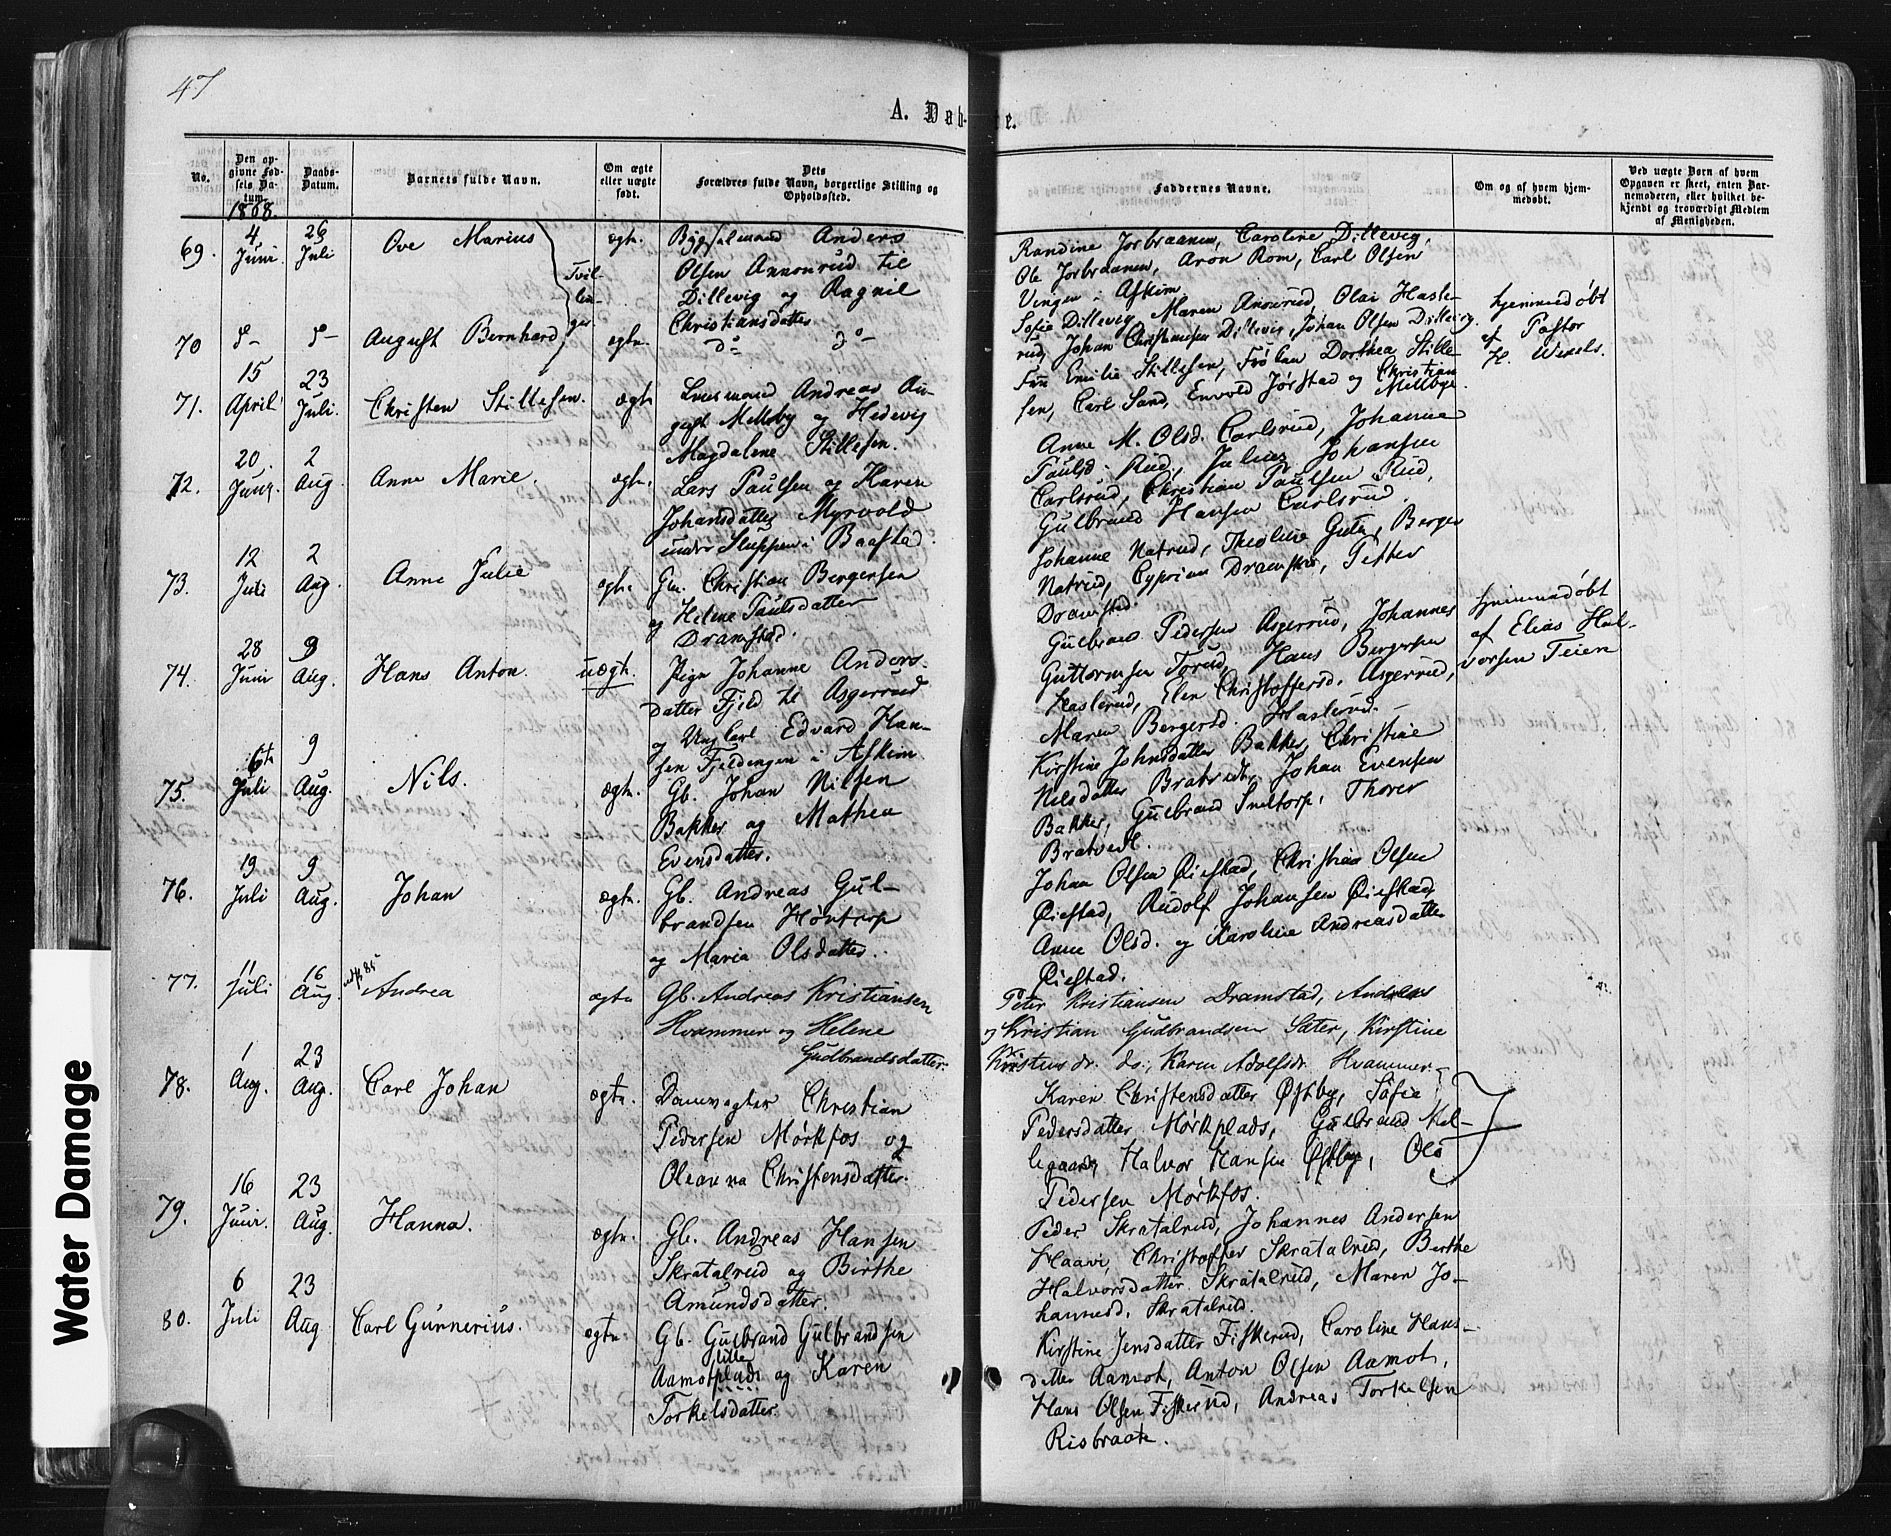 47
A. Døb- te.
No.
Den opgivne Fødsels Datum.
Daabs-Datum.
Barnets fulde Navn.
Om ægte eller uægte født.
Dets Forældres fulde Navn, borgerlige Stilling og Opholdssted.
Faddernes Navne.
Om og af hvem hjemmedøbt.
Ved uægte Børn af hvem Opgaven er skeet, enten Barnemoderen, eller hvilket bekjendt og troværdigt Medlem af Menigheden.
1868.
69. 4 Juni 26 Juli Ove Marius ægte.
Tvillinger
Bygselmand Anders
Olsen Annonrud til
Dillevig og Ragnil
Christiansdatter
Randine Jorbraanen, Caroline Dillevig,
Ole Jorbraanen, Aron Rom, Carl Olsen
Vingen i Askim
70 August Bernhard ægte.
do do
Sofie Dillevig, Maren Anonrud, Olai Hasle-
rud, Johan Christiansen Dillevig, Johan Olsen Dillevig.
hjemmedøbt
af Pastor
H. Wexels.
71. 15 April 23 Juli. Christen Stillesen. ægte
Lensmand Andreas Au-
gust Mellby og Hedevig
Magdalene Stillesen.
Emilie Stillesen, Frøken Dorthea Stille-
sen, Carl Sand, Envold Jørstad og Christian
Mellbye.
72. 20. Juni. 2 Aug. Anne Marie. ægte.
Lars Paulsen og Karen
Johansdatter Myrvold
under Sluppen i Baastad
Anne M. Olsd. Carlsrud, Johanne
Paulsd. Rud, Julius Johansen
Carlsrud, Christian Paulsen Rud,
Gulbrand Hansen Carlsrud.
73. 12 Juli 2 Aug. Anne Julie ægte.
Gm. Christian Bergersen
og Helene Paulsdatter
Dramstad.
Johanne Natrud, Theoline Guten, Berger
Natrud, Cyprian Dramstad, Petter
Dramstad.
74. 28 Juni 9 Aug. Hans Anton. uægte.
Pige Johanne Anders-
datter Fjeld til Asgerrud
og Ungkarl Edvard Han-
sen Fjeldengen i Askim.
Gulbrand Pedersen Asgerrud, Johannes
Guttormsen Torud, Hans Bergersen
Haslerud, Elen Christoffersd. Asgerrud,
Maren Bergersd. Haslerud.
hjemmedøbt
af Elias Hal-
vorsen Teien
75. 6te Juli 9 Aug. Nils. ægte.
Gb. Johan Nilsen
Bakker og Mathea
Evensdatter.
Kirstine Johnsdatter Bakker, Christine
Nilsdatter Bratvedt, Johan Evensen
Bakker, Gulbrand Sneltorp, Thorer
Bratvedt.
76. 19 Juli 9 Aug. Johan ægte.
Gb. Andreas Gul-
brandsen Høntorp
og Maria Olsdatter.
Johan Olsen Øiestad, Christian Olsen
Øiestad, Rudolf Johansen Øiestad,
Anne Olsd. og Karoline Andreasdatter
Øiestad.
77. 11 Juli 16 Aug. Andrea ægte
Gb. Andreas Kristiansen
Hvammer og Helene
Gudbrandsdatter.
Peter Kristiansen Dramstad, Andreas
og Kristian Gudbrandsen Sæter, Kirstine
Kristiansdr. do., Karen Adolfsdr. Hvammer
78. 1 Aug. 23 Aug. Carl Johan ægte.
Damvogter Christian
Pedersen Mørkfos og
Oleanna Christensdatter.
Karen Christensdatter Østby, Sofie
Pedersdatter Mørkplads, Gulbrand Mel-
legaard, Halvor Hansen Østby, Ole
Pedersen Mørkfos.
79. 16 Juni. 23 Aug. Hanna. ægte.
Gb. Andreas Hansen
Skratalrud og Birthe
Amundsdatter.
Peder Skratalrud, Johannes Andersen
Haave, Christoffer Skratalrud, Birthe
Halvorsdatter Skratalrud, Maren Jo-
hannesd. Skratalrud.
80. 6 Juli 23 Aug Carl Gunnerius. ægte.
Gb. Gulbrand Gulbrandsen
Aamot lille plads og Karen
Torkelsdatter
Kirstine Jensdatter Fiskerud, Caroline Hans-
datter Aamot, Anton Olsen Aamot,
Hans Olsen Fiskerud, Andreas Torkelsen
Risbraate.
Water Damage